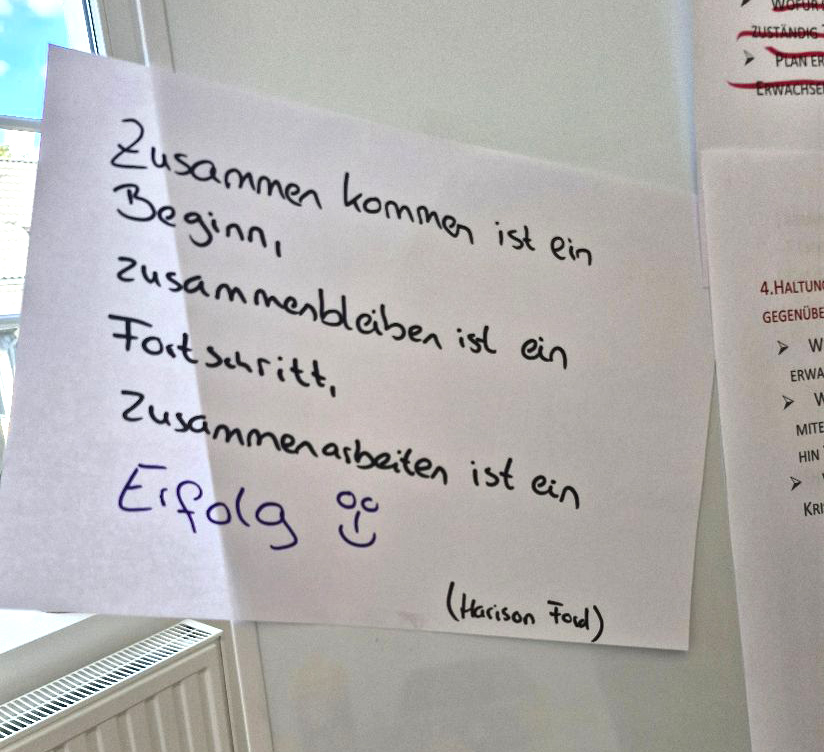 Zusammen kommen ist ein
Beginn,
zusammenbleiben ist ein
Fortschritt,
Zusammenarbeiten ist ein
Erfolg
(Harison Ford)
WOFÜR
ZUSTÄNDIG
PLAN ER
ERWACHSE
4.HALTUNG
GEGENÜBE
W
ERWA
W
MITE
HIN
KRI